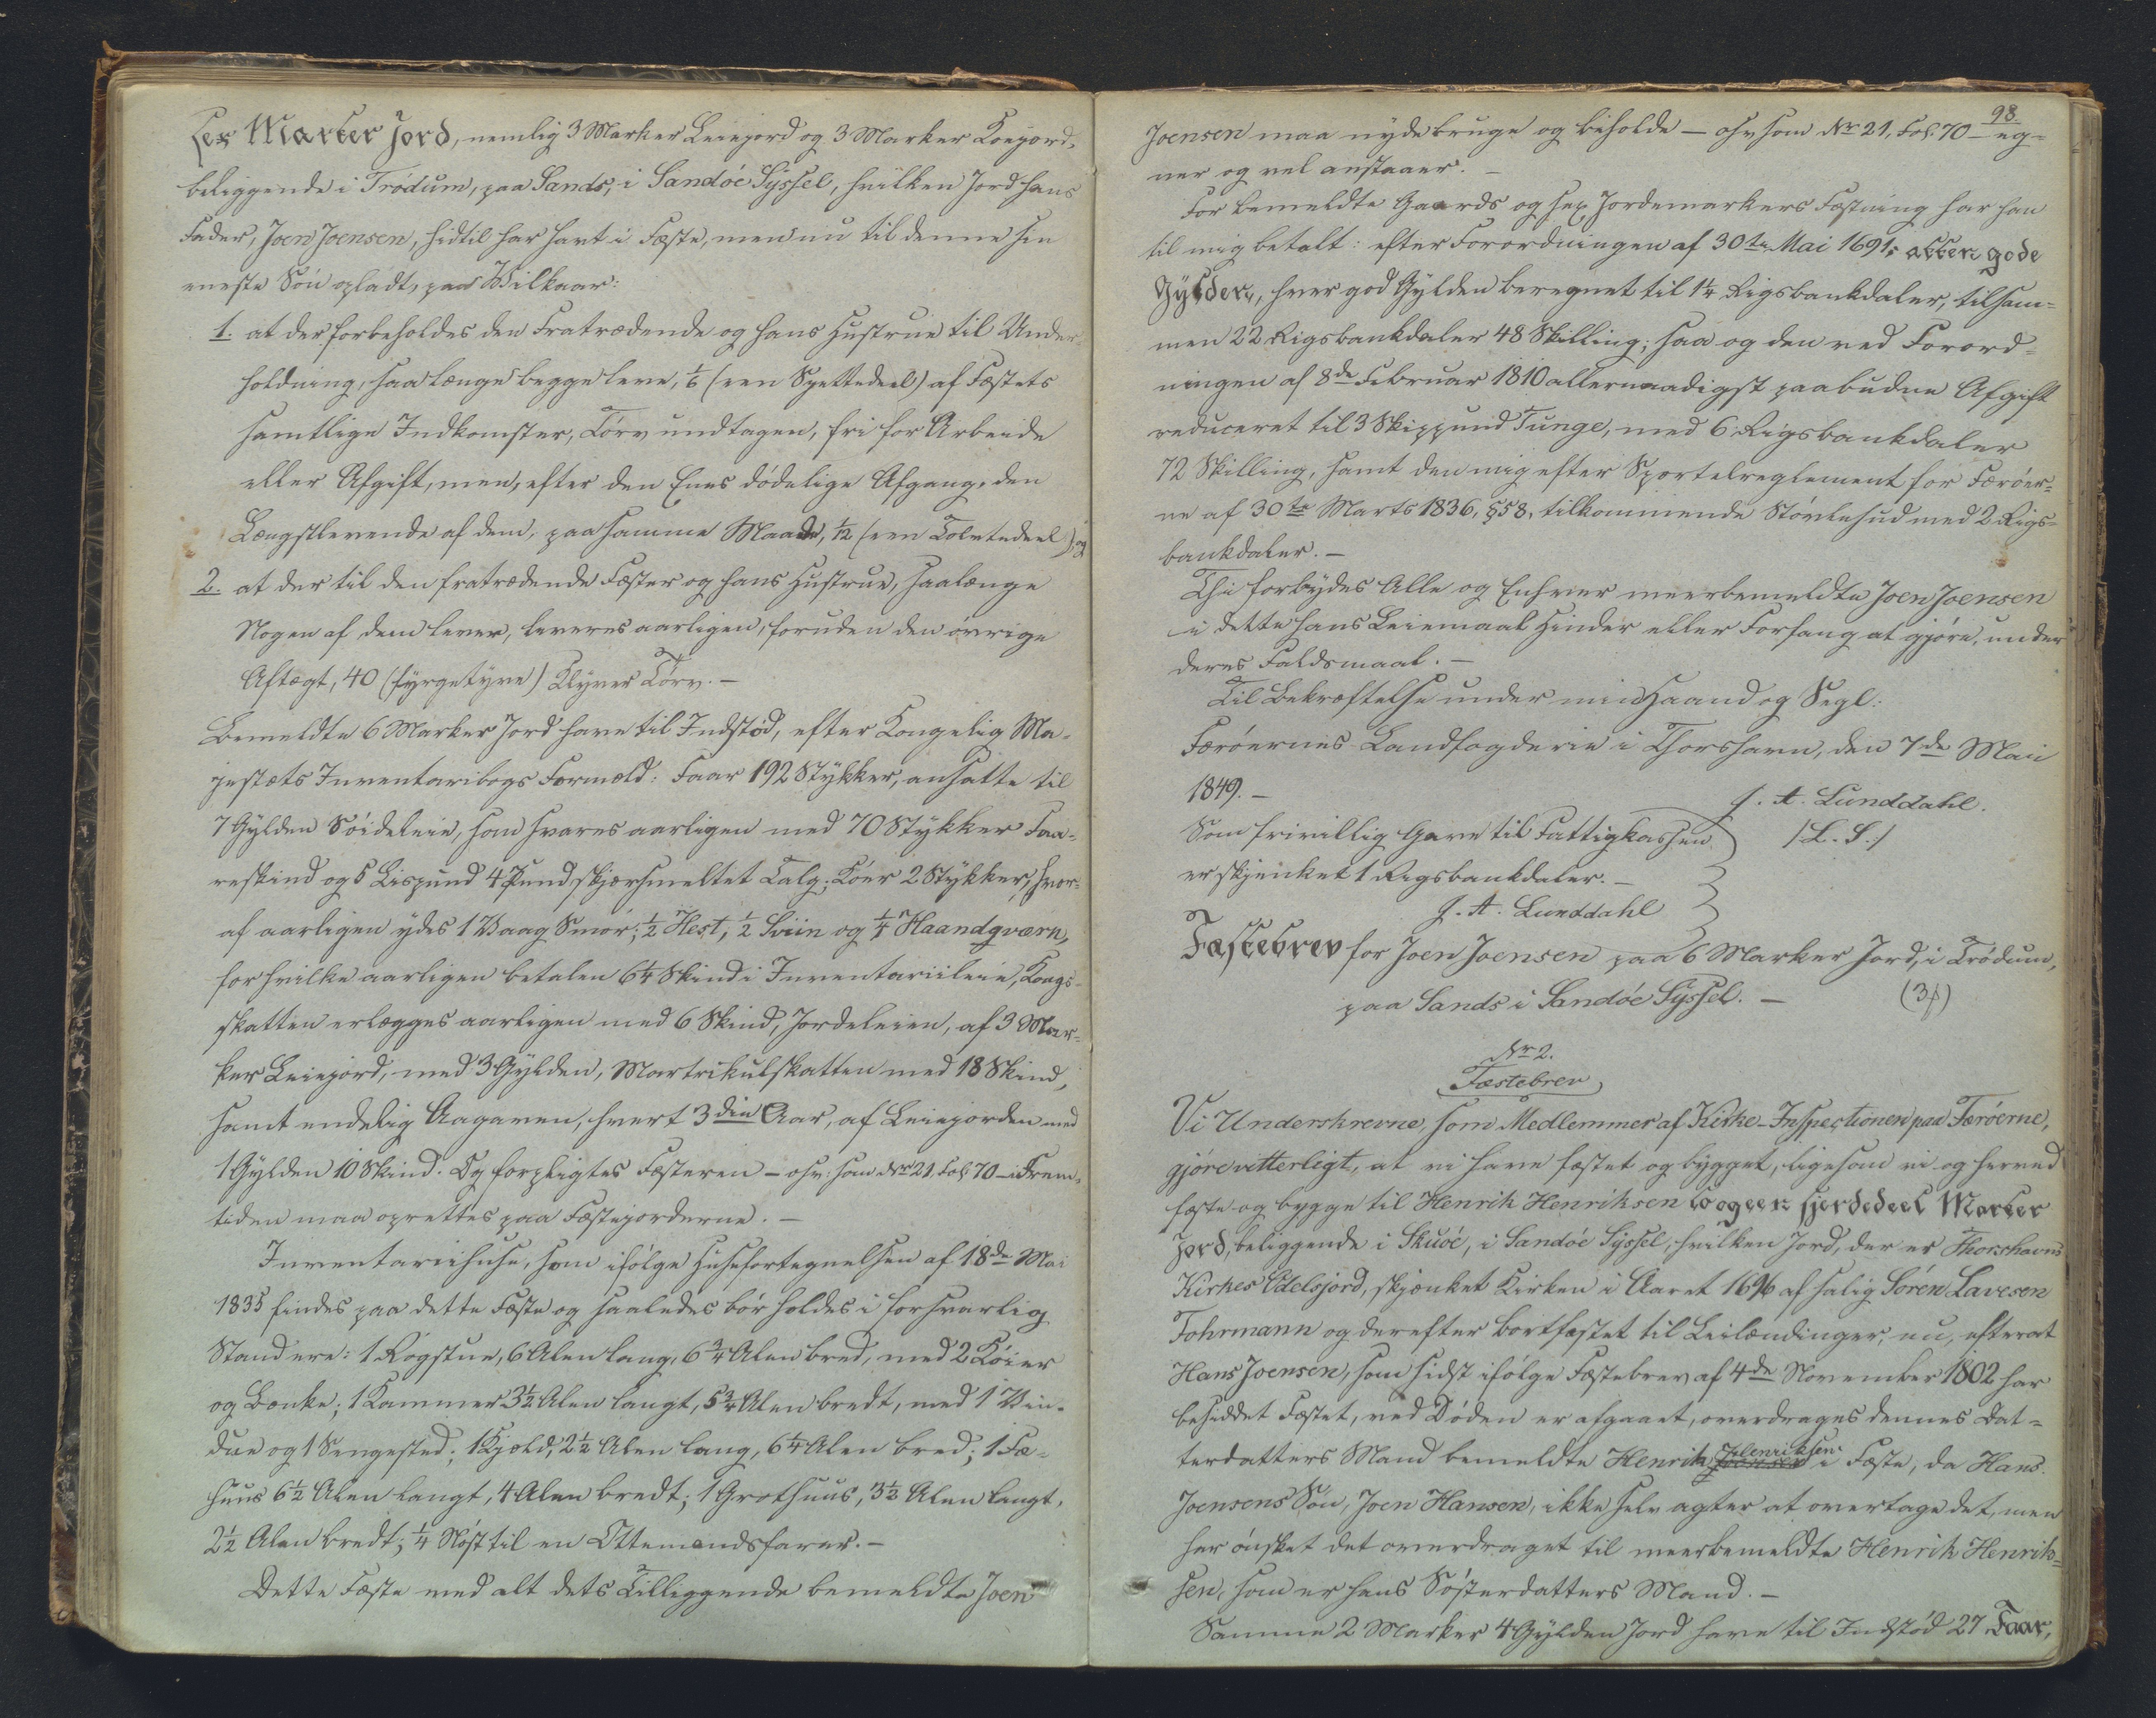 sex Marker Jord, nemlig 3 Marker Leiejord og 3 Marker Kongjord,
beliggende i Trødum, paa Sands, i Sandöe Syssel, hvilken Jord hans
Fader, Joen Joensen, hidtil har havt i Fæste, men nu til denne sin
eneste Sön opladt, paa Vilkaar:
1. at der forbeholdes den Fratrædende og hans Hustrue til Under-
holdning, saalænge begge leve, 1/6 (een Syettedeel) af Fæstets
samtlige Indkomster, Törv undtagen, fri for Arbeide
eller Afgift, men, efter den Enes dödelige Afgang, den
Længstlevende af dem, paa samme Maade, 1/12 (een Tolvtedeel); og
2. at der til den fratrædende Fæster og hans Hustrue, saalænge
Nogen af dem lever, leveres aarligen, foruden den övrige
Aftægt, 40 (fyrgetyve) Klyver Törv. —
Bemeldte 6 Marker Jord have til Indstöd, efter Kongelig Ma-
jestæts Inventariibogs Formæld: Faar 192 Stykker, ansatte til
7 Gylden Söideleie, som svares aarligen med 70 Stykker Faa-
reskind og 5 Lispund 4 Pund skjærsmeltet Talg; Köer 2 Stykker, hvor-
af aarligen ydes 1 Vaag Smör; 1/2 Hest, 1/2 Sviin og 1/4 Haandqværn,
for hvilke aarligen betales 6 1/4 Skind i Inventariileie, Kongs-
skatten erlægges aarligen med 6 Skind, Jordeleien, af 3 Mar-
ker Leiejord, med 3 Gylden, Martrikulskatten med 18 Skind,
samt endelig Aagaven, hvert 3die Aar, af Leiejorden med
1 Gylden 10 Skind. Og forpligtes Fæsteren – osv: som Nr 21. Fol 70 – i Frem-
tiden maa oprettes paa Fæstejorderne. —
Inventariihuse, som ifölge Huusfortegnelsen af 18de Mai
1835 findes paa dette Fæste og saaledes bör holdes i forsvarlig
Stand ere: 1 Rögstue, 6 Alen lang, 6 3/4 Alen bred, med 2 Köier
og Bænke; 1 Kammer 3 1/2 Alen langt, 5 3/4 Alen bredt, med 1 Vin-
due og 1 Sengested; 1 Kjold, 2 1/2 Alen lang, 6 1/4 Alen bred; 1 Fæ-
huus 6 1/2 Alen langt, 4 Alen bredt; 1 Grothuus, 3 1/2 Alen langt,
2 1/2 Alen bredt; 1/4 Nöst til en Ottemandsfarer. —
Dette Fæste med alt dets Tilliggende bemeldte Joen
98.
Joensen maa nyde bruge og beholde — osv som Nr 21, Fol. 70 — eg-
ner og vel anstaaer. —
For bemeldte Gaards og sex Jordemarkers Fæstning har han
til mig betalt: efter Forordningen af 30te Mai 1691, atten gode
Gylden, hver god Gylden beregnet til 1 1/4 Rigsbankdaler, tilsam-
men 22 Rigsbankdaler 48 Skilling; saa og den ved Forord-
ningen af 8de Februar 1810 allernaadigst paabudne Afgift
reduceret til 3 Skippund Tunge, med 6 Rigsbankdaler
72 Skilling, samt den mig efter Sportelreglement for Færöer-
ne af 30te Marts 1836, §58, tilkommende Störlehud med 2 Rigs-
bankdaler. —
Thi forbydes Alle og Enhver meerbemeldte Joen Joensen
i dette hans Leiemaal Hinder eller Forfang at gjöre, under
deres Faldsmaal. —
Til Bekræftelse under min Haand og Segl:
Færöernes Landfogderie i Thorshavn, den 7de Mai
1849. —
J. A. Lunddahl.
/L. S./
Som frivillig Gave til Fattigkassen
er skjenket 1 Rigsbankdaler. —
J. A. Lunddahl
Fæstebrev for Joen Joensen paa 6 Marker Jord, i Trödum,
paa Sands i Sandöe Syssel. —
(3β)
Nr 2.
Fæstebrev
Vi Underskrevne, som Medlemmer af Kirke-Inspectionen paa Færöerne,
gjöre vitterligt, at vi have fæstet og bygget, ligesom vi og herved
fæste og bygge til Henrik Henriksen to og een fjerdedeel Marker
Jord, beliggende i Skuöe, i Sandöe Syssel, hvilken Jord, der er Thorshavns
Kirkes Odelsjord, skjænket Kirken i Aaret 1696 af salig Sören Lavesen
Fohrmann og derefter bortfæstet til Leilændinger, nu, efterat
Hans Joensen, som sidst ifölge Fæstebrev af 4de November 1802 har
besiddet Fæstet, ved Döden er afgaaet, overdrages dennes Dat-
terdatters Mand bemeldte Henrik Henriksen i Fæste, da Hans
Joensens Sön, Joen Hansen, ikke selv agter at overtage det, men
har önsket det overdraget til meerbemeldte Henrik Henrik-
sen, som er hans Sösterdatters Mand. —
Samme 2 Marker 4 Gylden Jord have til Indstöd 27 Faar,